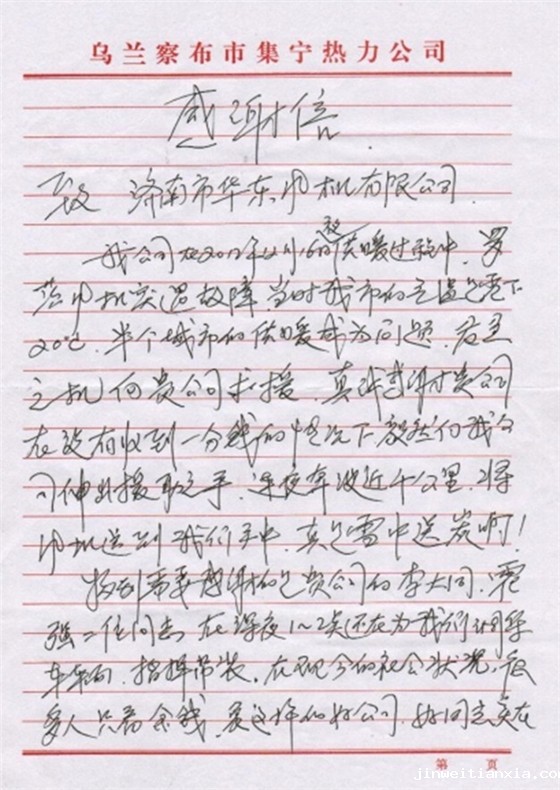 乌兰察布市集宁热力公司
感谢信
致 济南市华东风机有限公司
我公司在2012年12月16日夜供暖过程中，罗
茨风机突遇故障，当时我市的气温是零下
20℃，半个城市的供暖成为问题，
之机向贵公司求援，真我感谢贵公司
在没有收到一分钱的情况下毅然向我公
司伸出援助之手，连夜奔波近千公里，将
风机送到我们手中，真是雪中送炭啊！
特别需要感谢的是贵公司的李大同、霍
强二位同志，在深夜1～2点还在为我们
车辆，指挥吊装，在现今的社会状况，很
多人只看金钱，象这样的好公司，好同志实在
第 页
jinweitianxia.com